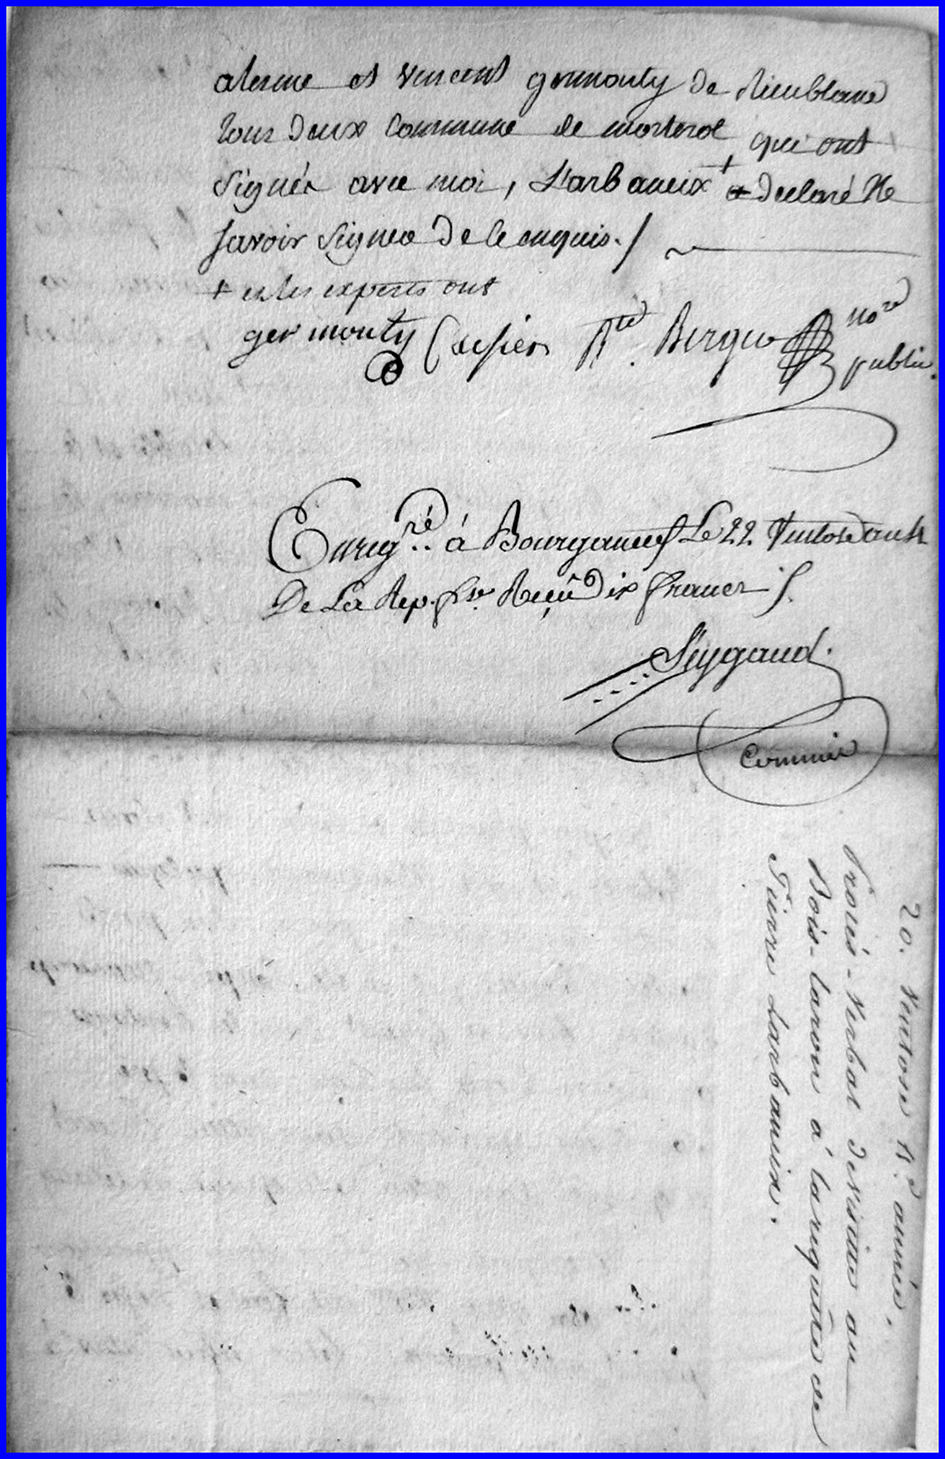 et vincent germouty de rieublanc
tous deux commune de morterol qui ont
signés avec moi, Larbaneix + a declaré Ne
savoir signer de ce enquis./.
+ et les experts ont
germouty Berger no.re
public.
Enreg.ré à Bourganeuf Le 22 Ventose an 4
De La Rep. Reçû Dix francs
Seygaud.
Commis
20. Ventose 4.e année,
Procès-Verbal de visitte au
Bois-laron à la requêtte de
Pierre Larbaneix.